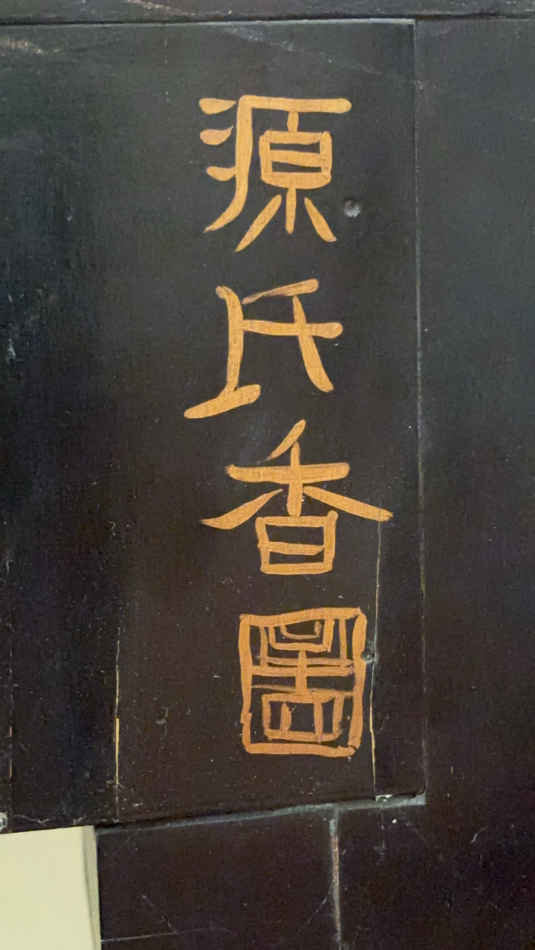 源氏香圖